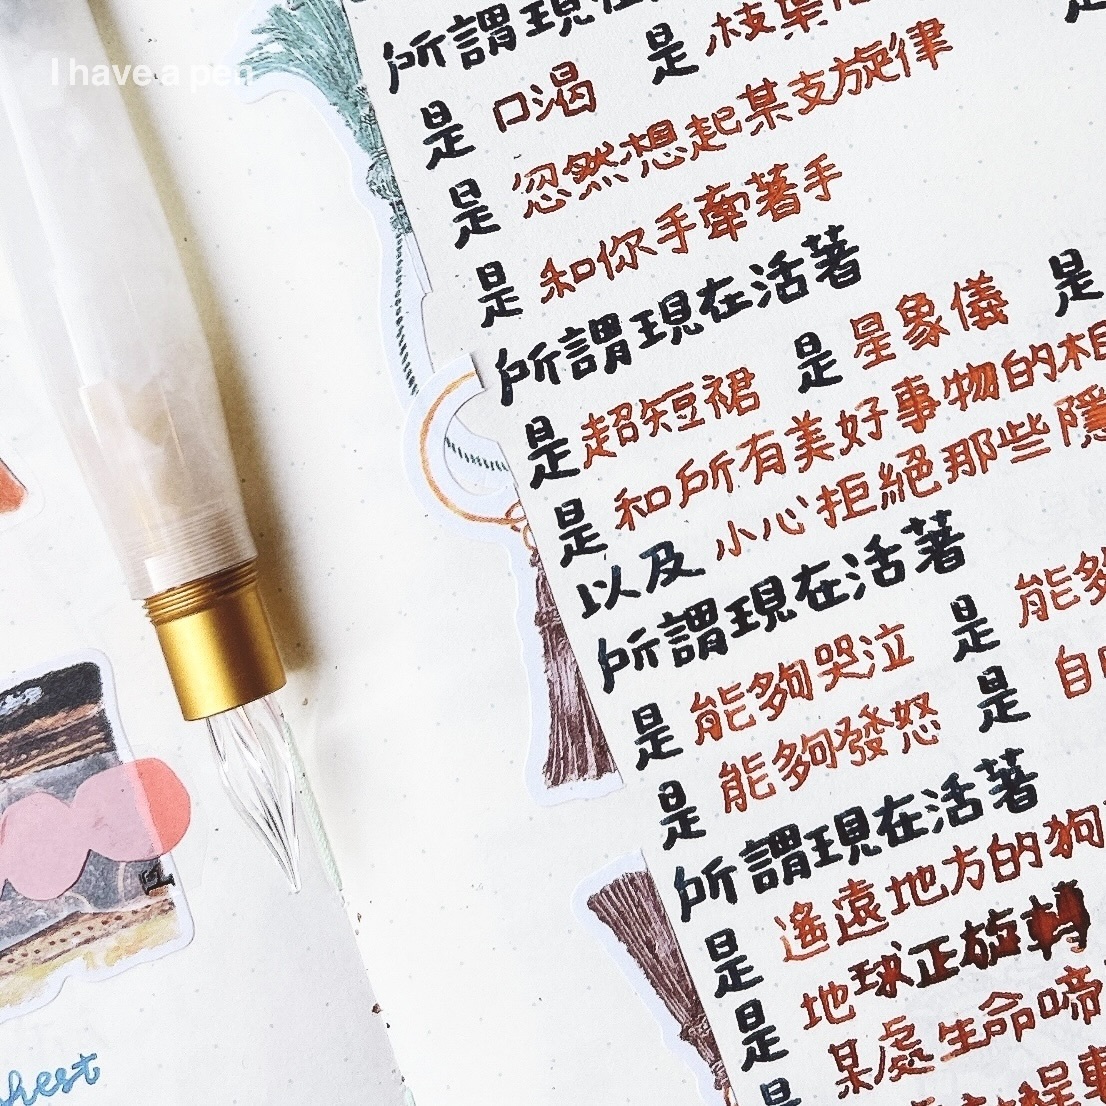 I have a pen
所謂現在
是 口渴 是 枝葉
是 忽然想起某支旋律
是 和你手牽著手
所謂現在活著
是超短裙 是星象儀 是
是 和所有美好事物的相
以及 小心拒絕那些隱
所謂現在活著
是 能夠哭泣 是 能夠
是 能夠發怒 是 自
所謂現在活著
是 遙遠地方的狗
是 地球正旋轉
是 某處生命啼